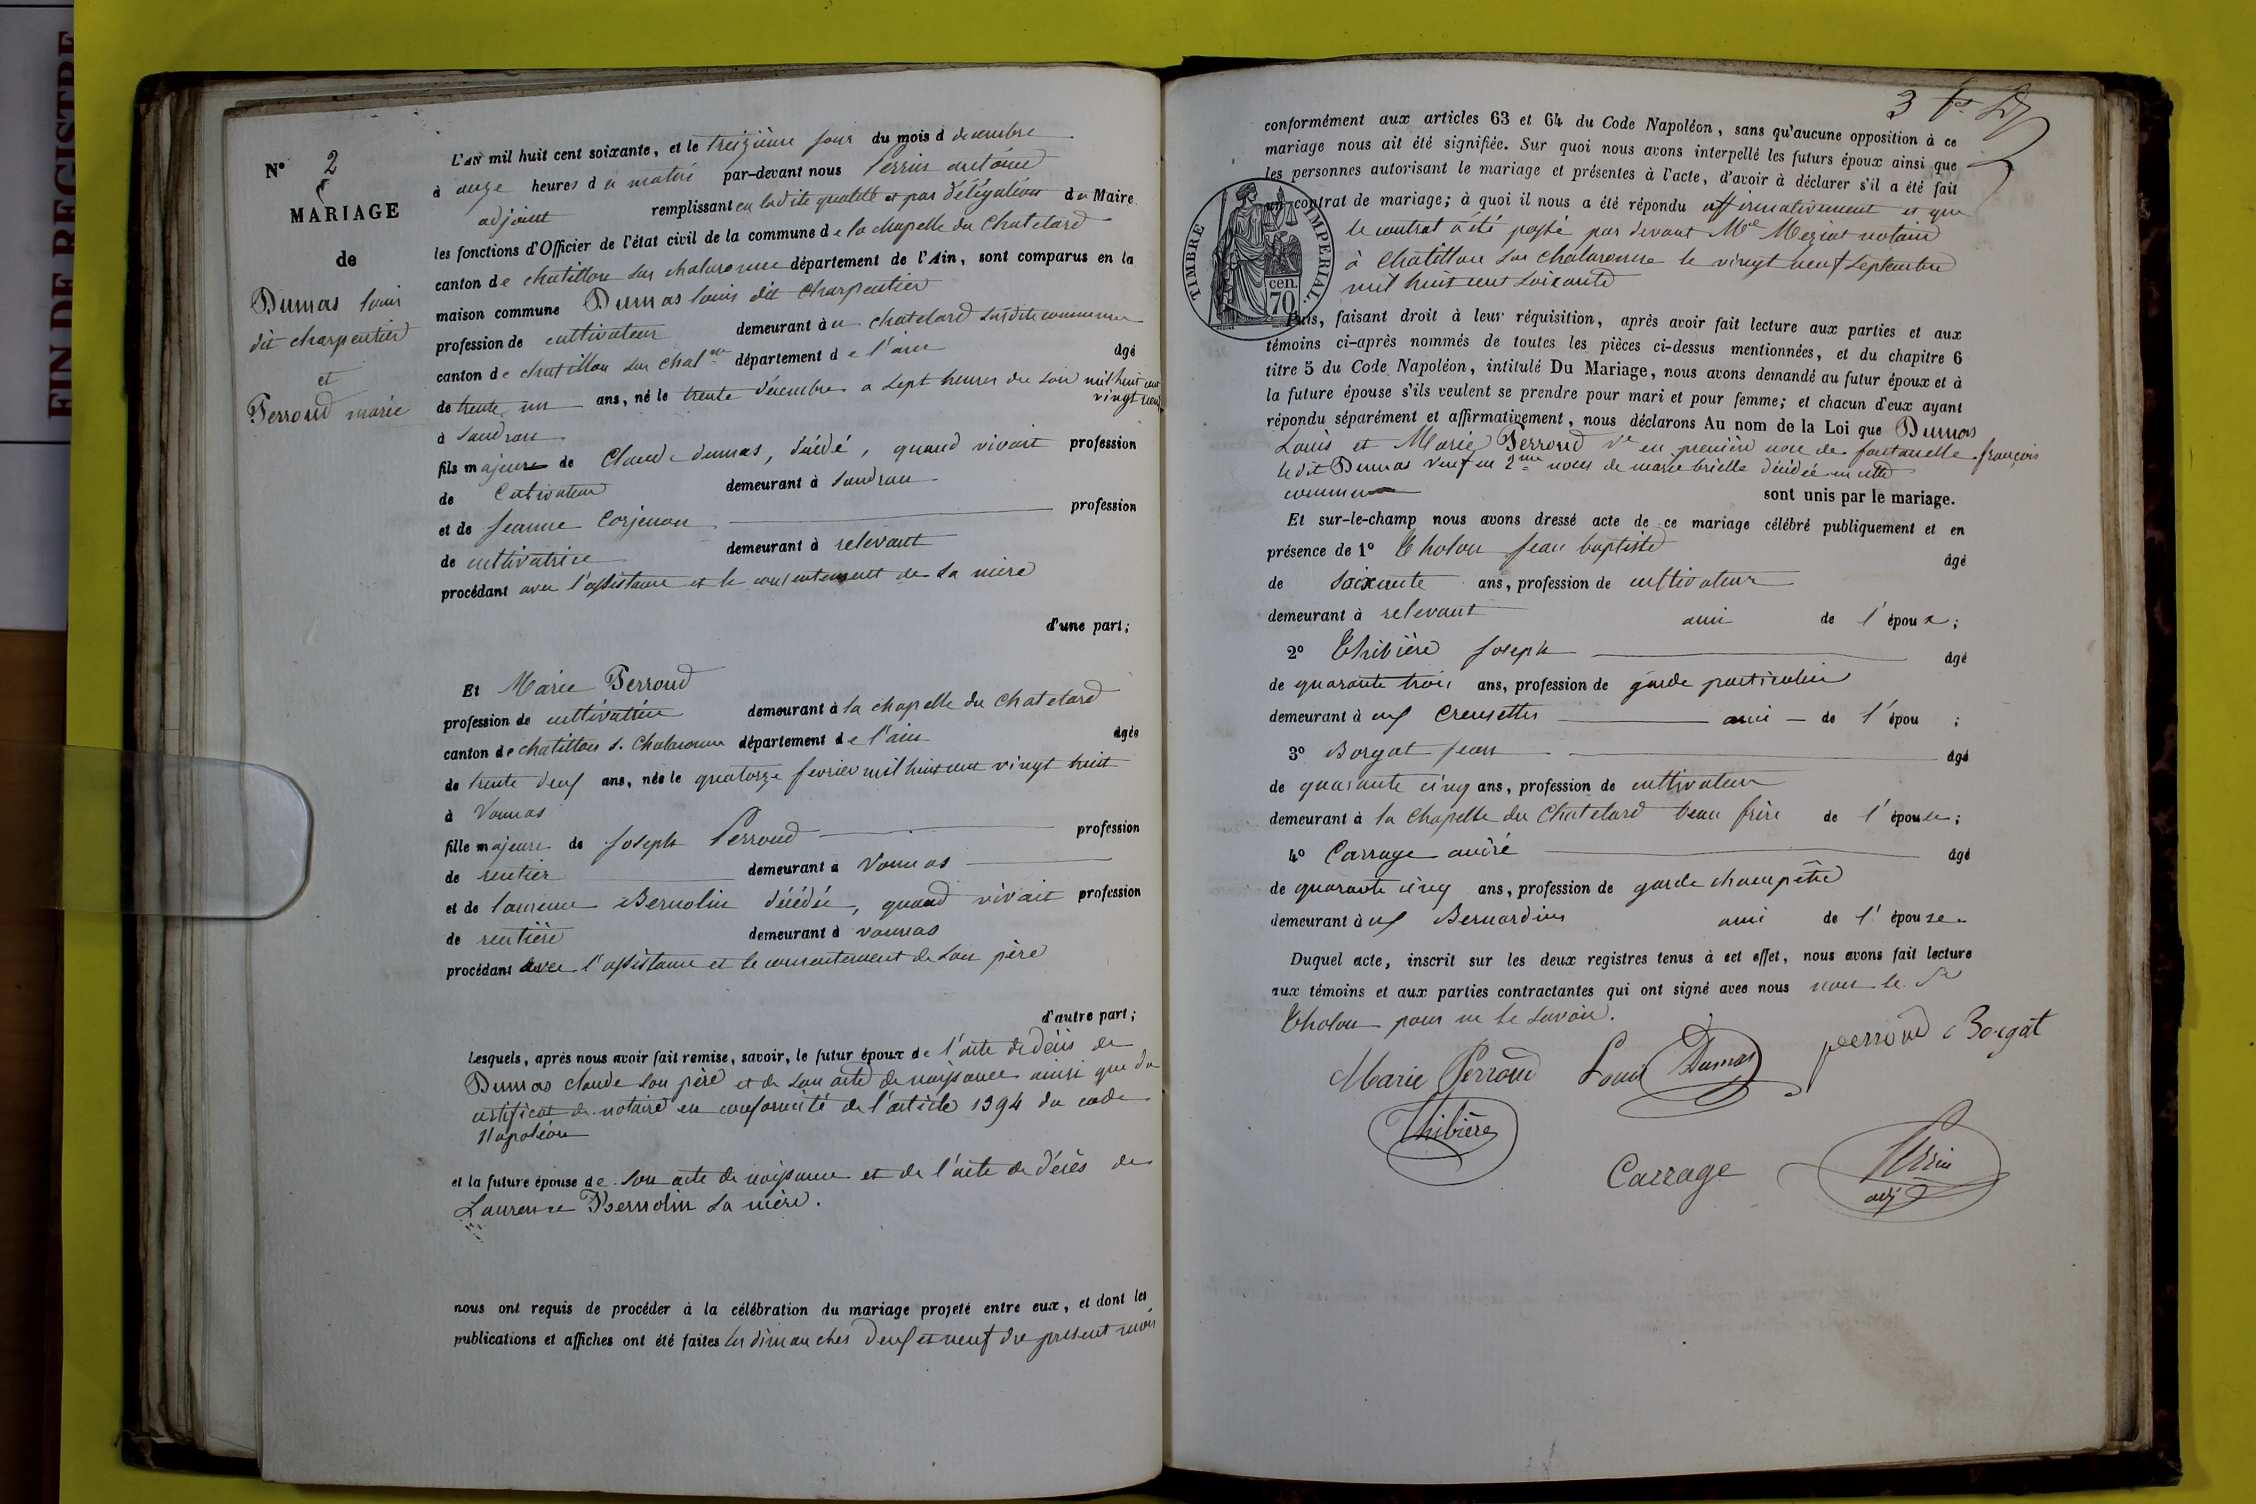 FIN DE REGISTRE
N° 2
MARIAGE
de
Dumas louis
dit charpentier
et
Perroud marie
L'AN mil huit cent soixante, et le treizième jour du mois d decembre
à onze heures d u matin par-devant nous Perrin antoine
adjoint remplissant en ladite qualité et par délégation du Maire
les fonctions d'Officier de l'état civil de la commune de la chapelle du Chatelard
canton de chatillon sur chalaronne département de l'Ain, sont comparus en la
maison commune Dumas louis dit charpentier
profession de cultivateur demeurant à u chatelard susdite commune
canton de chatillon sur chal.ne département de l'ain âgé
de trente un ans, né le trente décembre a sept heures du soir mil huit cent
vingt neuf
à Sandran
fils majeur de Claude dumas, décédé, quand vivait profession
de Cultivateur demeurant à Sandran
et de jeanne Corjenon profession
de cultivatrice demeurant à relevant
procédant avec l'assistance et le consentement de sa mère
d'une part;
Et Marie Perroud
profession de cultivatrice demeurant à la chapelle du chatelard
canton de chatillon s. Chalaronne département de l'ain âgée
de trente deux ans, née le quatorze fevrier mil huit cent vingt huit
à Vonnas
fille majeure de joseph Perroud profession
de rentier demeurant à Vonnas
et de laurence Bernolin décédée, quand vivait profession
de rentière demeurant à vonnas
procédant avec l'assistance et le consentement de son père
d'autre part;
Lesquels, après nous avoir fait remise, savoir, le futur époux de l'acte de décès de
Dumas claude son père et de son acte de naissance ainsi que du
certificat de notaire en conformité de l'article 1394 du code
Napoléon
et la future épouse de son acte de naissance et de l'acte de décès de
Laurence Bernolin sa mère.
nous ont requis de procéder à la célébration du mariage projeté entre eux, et dont les
publications et affiches ont été faites les dimanches deux et neuf du présent mois
3
conformément aux articles 63 et 64 du Code Napoléon, sans qu'aucune opposition à ce
mariage nous ait été signifiée. Sur quoi nous avons interpellé les futurs époux ainsi que
les personnes autorisant le mariage et présentes à l'acte, d'avoir à déclarer s'il a été fait
un contrat de mariage; à quoi il nous a été répondu affirmativement et que
le contrat a été passé par devant Me Meziat notaire
à Chatillon sur Chalaronne le vingt neuf Septembre
mil huit cent soixante
TIMBRE IMPERIAL.
70 cen.
Puis, faisant droit à leur réquisition, après avoir fait lecture aux parties et aux
témoins ci-après nommés de toutes les pièces ci-dessus mentionnées, et du chapitre 6
titre 5 du Code Napoléon, intitulé Du Mariage, nous avons demandé au futur époux et à
la future épouse s'ils veulent se prendre pour mari et pour femme; et chacun d'eux ayant
répondu séparément et affirmativement, nous déclarons Au nom de la Loi que Dumas
Louis et Marie Perroud Ve en première noce de fontanelle françois
le dit Dumas veuf en 2me noces de marie brielle décédée en cette
commune sont unis par le mariage.
Et sur-le-champ nous avons dressé acte de ce mariage célébré publiquement et en
présence de 1° Tholon jean baptiste âgé
de soixante ans, profession de cultivateur
demeurant à relevant ami de l'époux;
2° Thibière joseph âgé
de quarante trois ans, profession de garde particulier
demeurant à ux Creusettes ami de l'épou ;
3° Borgat jean âgé
de quarante cinq ans, profession de cultivateur
demeurant à la Chapelle du Chatelard beau frère de l'épouse;
4° Carrage andré âgé
de quarante cinq ans, profession de garde champêtre
demeurant à ux Bernardins ami de l'épouse.
Duquel acte, inscrit sur les deux registres tenus à cet effet, nous avons fait lecture
aux témoins et aux parties contractantes qui ont signé avec nous non le Sr
Tholon pour ne le savoir.
Marie Perroud Louis Dumas perroud Borgat
Thibière
Carrage Perrin
adj